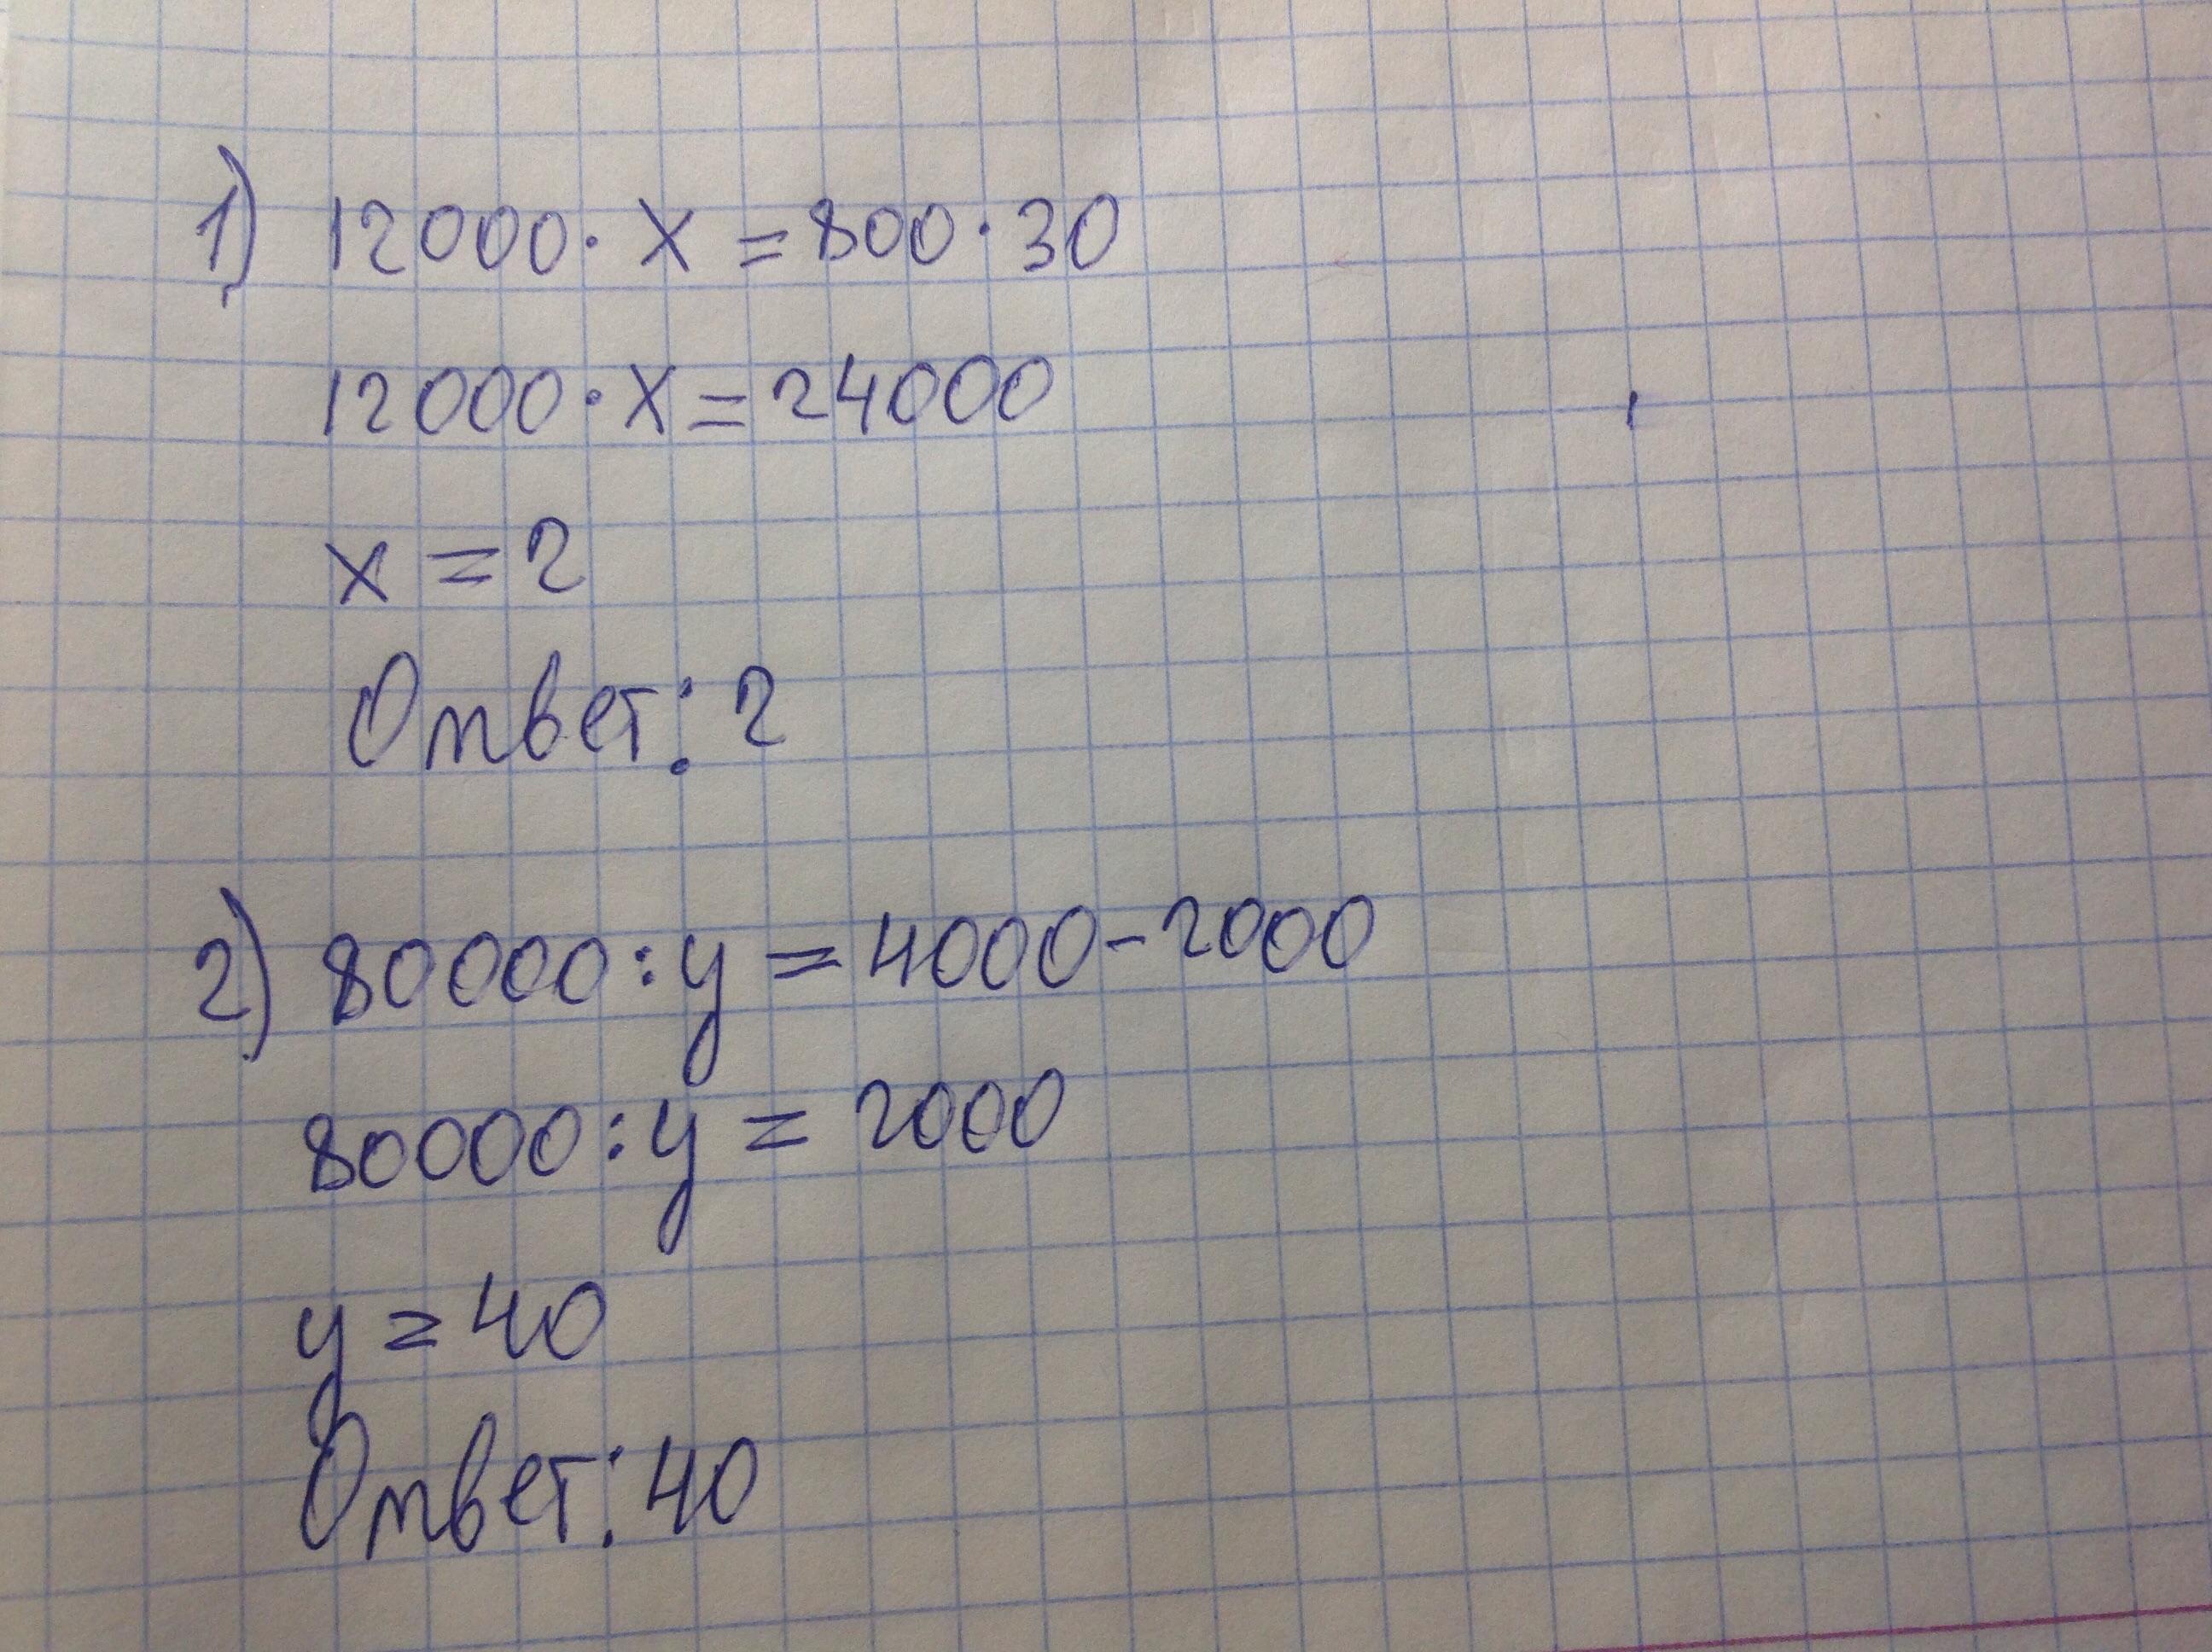 1) 12000 · x = 800 · 30
12000 · x = 24000
x = 2
Ответ: 2
2) 80000 : y = 4000 - 2000
80000 : y = 2000
y = 40
Ответ: 40